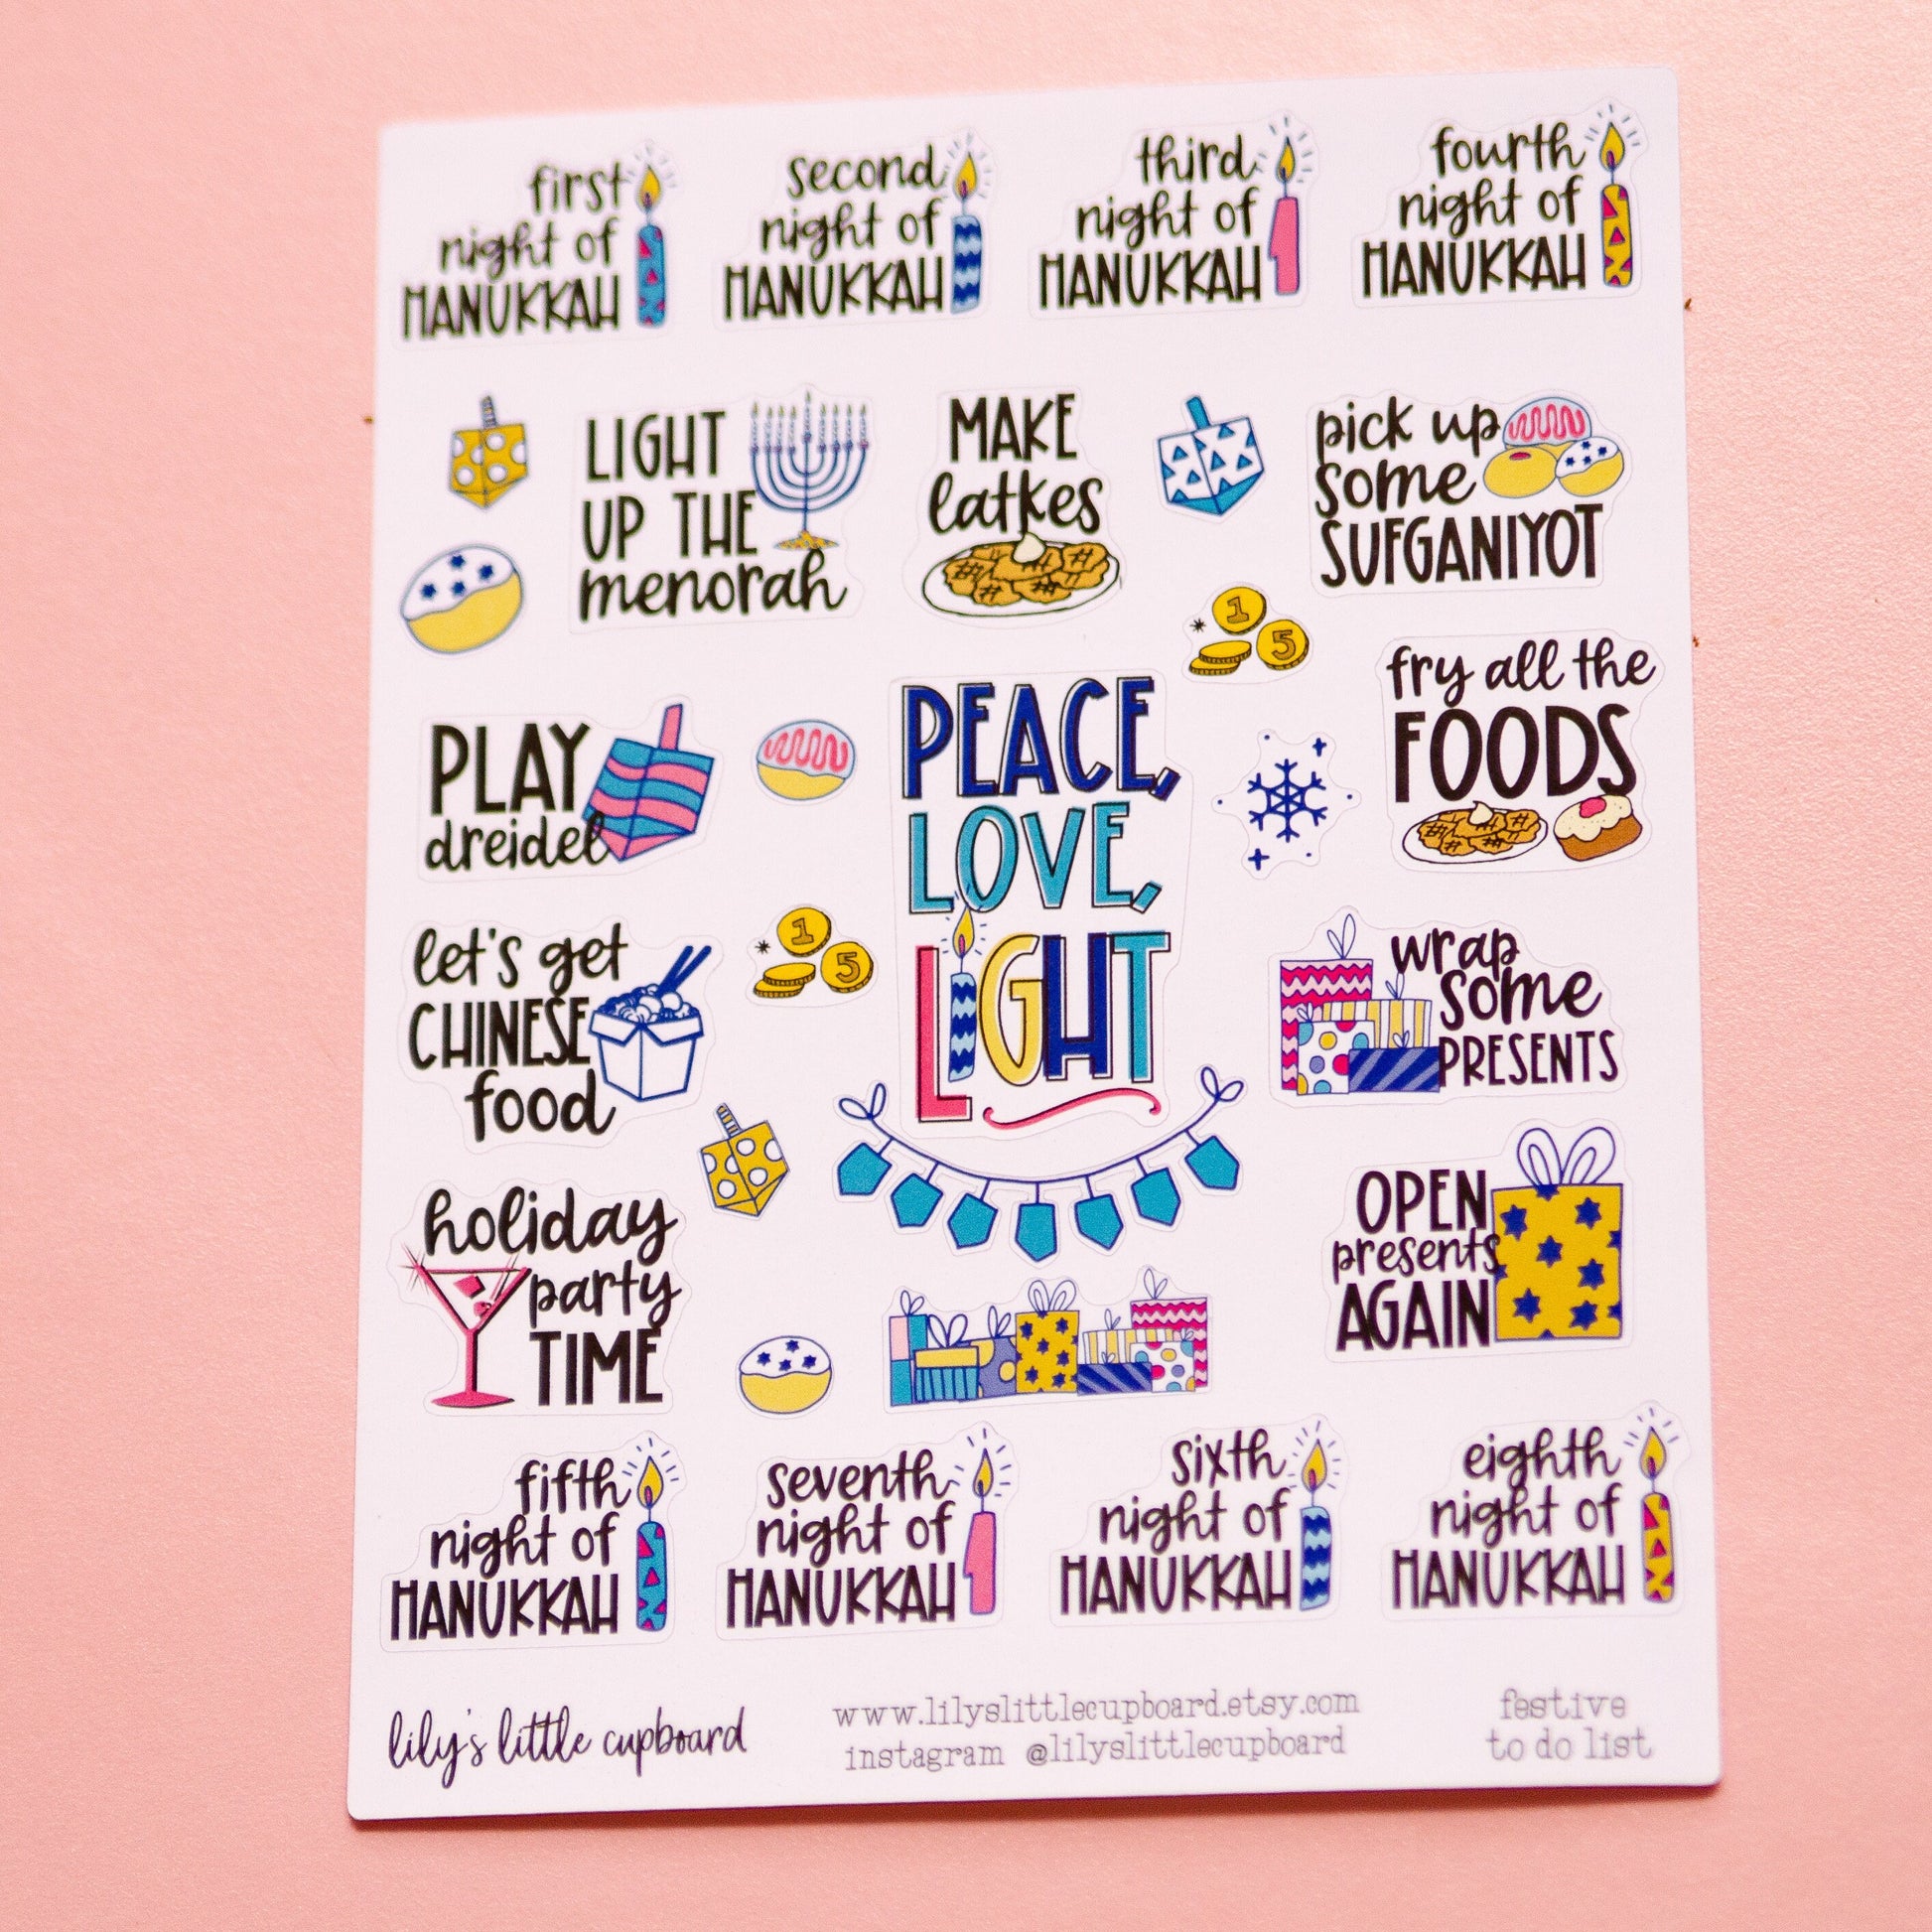 first
night of
HANUKKAH
second
night of
HANUKKAH
third
night of
HANUKKAH
fourth
night of
HANUKKAH
LIGHT
UP THE
menorah
MAKE
latkes
pick up
some
SUFGANIYOT
1
5
fry all the
FOODS
PLAY
dreidel
PEACE,
LOVE,
LIGHT
let's get
CHINESE
food
1
5
wrap
some
PRESENTS
holiday
party
TIME
OPEN
presents
AGAIN
fifth
night of
HANUKKAH
seventh
night of
HANUKKAH
sixth
night of
HANUKKAH
eighth
night of
HANUKKAH
lily's little cupboard
www.lilyslittlecupboard.etsy.com
instagram @lilyslittlecupboard
festive
to do list